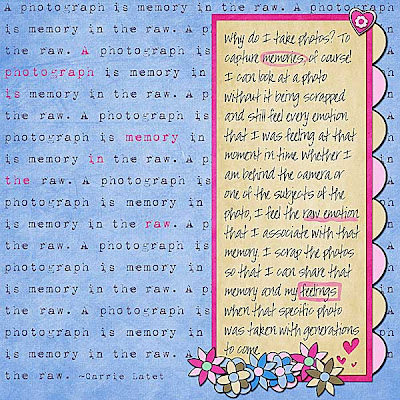 A photograph is memory in the raw. A
is memory in the raw. A
the raw. A photograph is
photograph is memory in
is memory in the raw. A
the raw. A photograph is
A photograph is memory in
is memory in the raw. A
the raw. A photograph is
A photograph is memory in
is memory in the raw. A
the raw. A photograph is
A photograph is memory in
is memory in the raw. A
the raw. A photograph is
A photograph is memory in
is memory in the raw. A
the raw. ~Carrie Latet
Why do I take photos? To
capture memories, of course!
I can look at a photo
without it being scrapped
and still feel every emotion
that I was feeling at that
moment in time. Whether I
am behind the camera or
one of the subjects of the
photo, I feel the raw emotion
that I associate with that
memory. I scrap the photos
so that I can share that
memory and my feelings
when that specific photo
was taken with generations
to come.